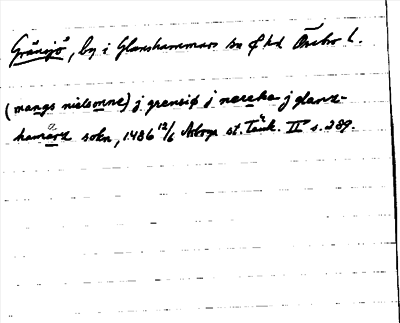 Gränsjö, by i Glanshammars sn o hd Örebro l.
(mangs nielsonne) j grensiø j nereka j glanz-
hamarz sokn, 1486 12/6 Arboga st. Tänk. II s. 389.